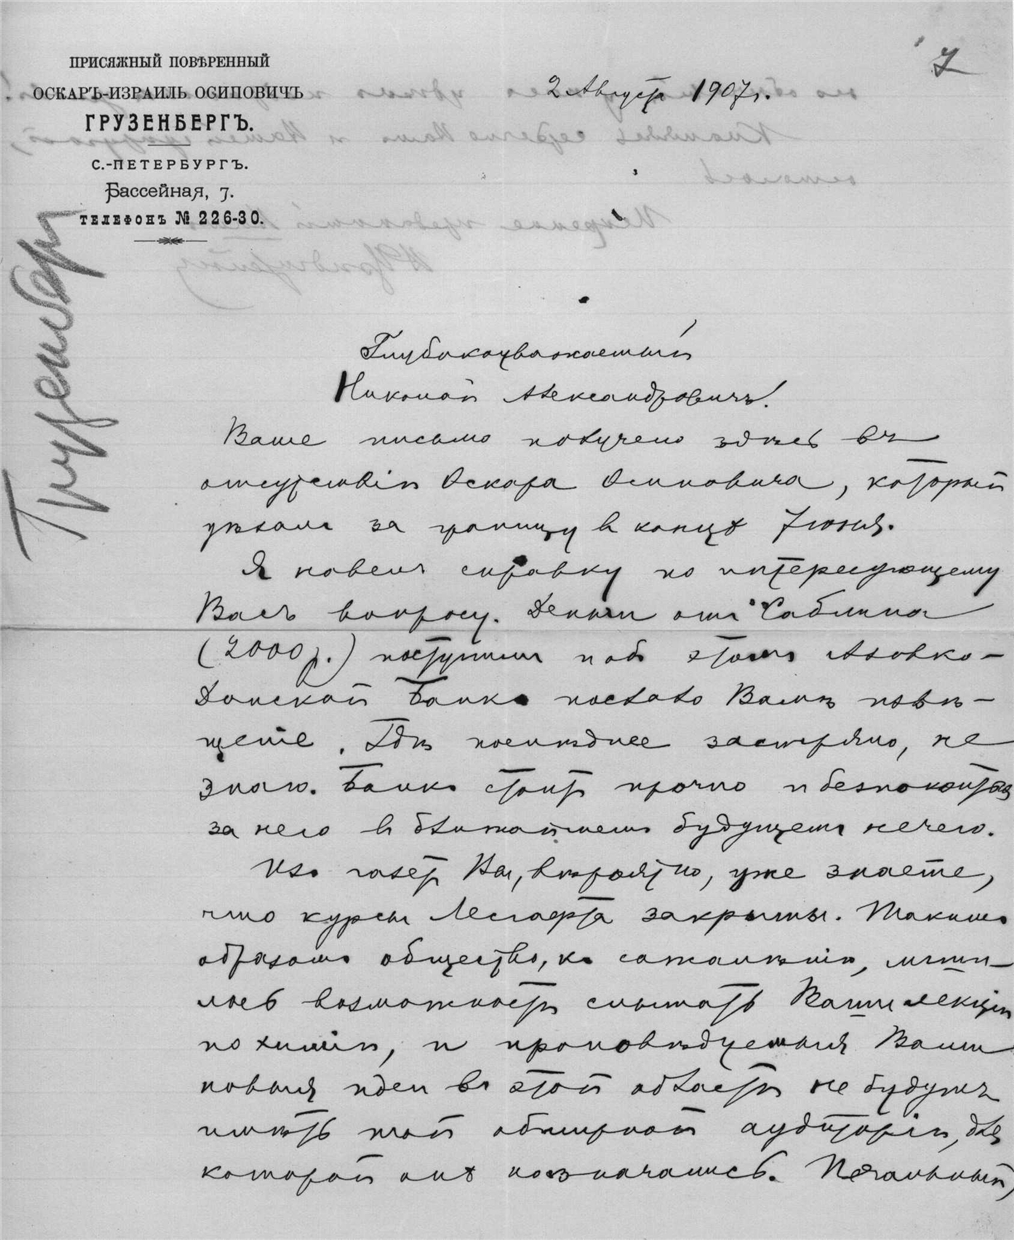 ПРИСЯЖНЫЙ ПОВѢРЕННЫЙ
ОСКАРЪ-ИЗРАИЛЬ ОСИПОВИЧЪ
ГРУЗЕНБЕРГЪ.
С.-ПЕТЕРБУРГЪ.
Бассейная, 7.
ТЕЛЕФОНЪ № 226-30.
7
2 Августа 1907 г.
Грузенберг
Глубокоуважаемый
Николай Александровичъ!
Ваше письмо получено здѣсь въ
отсутствіи Оскара Осиповича, который
уѣхалъ за границу в концѣ Іюня.
Я навелъ справку по интересующему
Васъ вопросу. Деньги отъ Саблина
(2000 р.) поступили и об этомъ Азовко-
Донской Банкъ послалъ Вамъ извѣ-
щеніе. Гдѣ послѣднее застряло, не
знаю. Банкъ стоитъ прочно и безпокоиться
за него в ближайшемъ будущемъ нечего.
Изъ газетъ Вы, вѣроятно, уже знаете,
что курсы Лесгафта закрыты. Такимъ
образомъ общество, къ сожалѣнію, лиши-
лось возможности слышать Ваши лекціи
по химіи, и проповѣдуемыя Вами
новыя идеи въ этой области не будутъ
имѣть той обширной аудиторіи, для
которой онѣ назначались. Печальный,